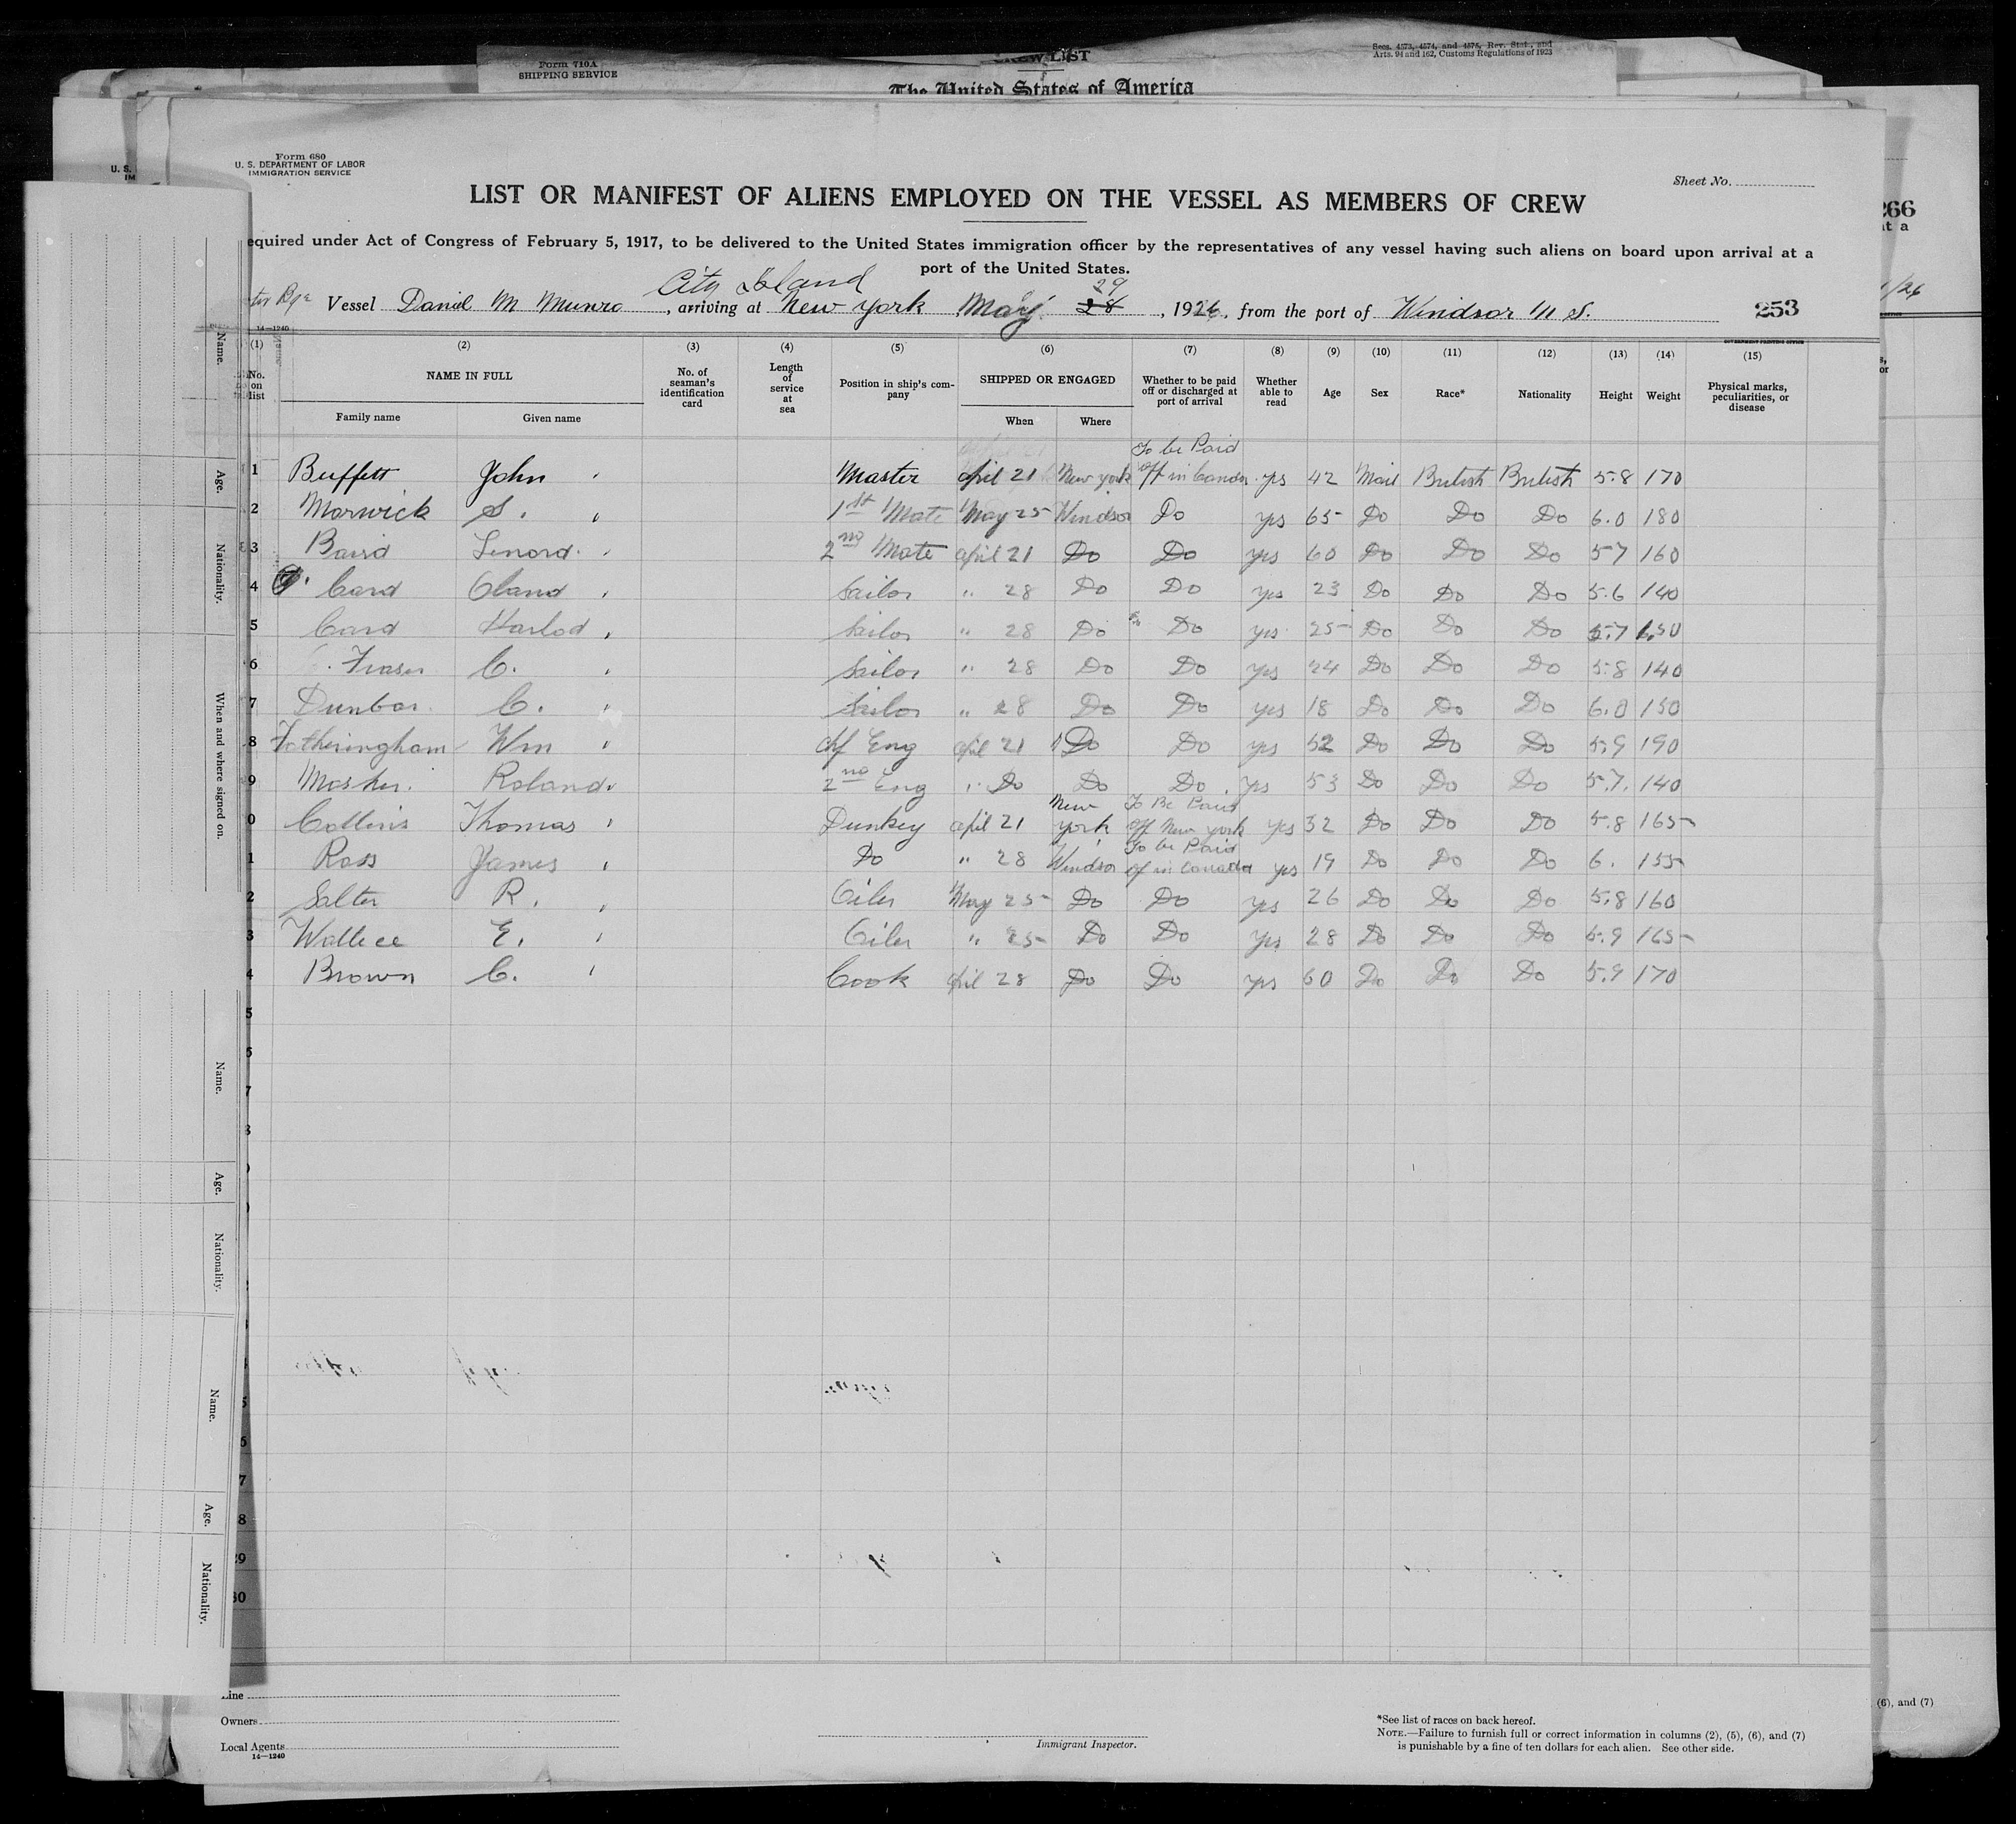 Form 710A
SHIPPING SERVICE
CREW LIST
Secs. 4573, 4574, and 4575, Rev. Stat., and
Arts. 94 and 162, Customs Regulations of 1923
The United States of America
Form 680
U. S. DEPARTMENT OF LABOR
IMMIGRATION SERVICE
U. S.
IM
Sheet No.
LIST OR MANIFEST OF ALIENS EMPLOYED ON THE VESSEL AS MEMBERS OF CREW
266
equired under Act of Congress of February 5, 1917, to be delivered to the United States immigration officer by the representatives of any vessel having such aliens on board upon arrival at a
port of the United States.
City Island
29
Vessel Daniel M Munro, arriving at New York May 28, 1926, from the port of Windsor N S. 253
14—1240
GOVERNMENT PRINTING OFFICE
(1) (2) (3) (4) (5) (6) (7) (8) (9) (10) (11) (12) (13) (14) (15)
No. on list NAME IN FULL No. of seaman's identification card Length of service at sea Position in ship's company SHIPPED OR ENGAGED Whether to be paid off or discharged at port of arrival Whether able to read Age Sex Race* Nationality Height Weight Physical marks, peculiarities, or disease
Family name Given name When Where
To be Paid
1 Buffett John Master April 21 New york off in Canda yes 42 Mail British British 5.8 170
2 Marwick S. 1st Mate May 25 Windsor Do yes 65 Do Do Do 6.0 180
3 Baird Lenord 2nd Mate april 21 Do Do yes 60 Do Do Do 57 160
4 Card Oland Sailor " 28 Do Do yes 23 Do Do Do 5.6 140
5 Card Harlod Sailor " 28 Do Do yes 25 Do Do Do 5.7 150
6 Fraser C. Sailor " 28 Do Do yes 24 Do Do Do 5.8 140
7 Dunbar C. Sailor " 28 Do Do yes 18 Do Do Do 6.0 150
8 Fotheringham Wm chf Eng april 21 Do Do yes 52 Do Do Do 5.9 190
9 Mosher Roland 2nd Eng " Do Do Do yes 53 Do Do Do 5.7. 140
New To Be Paid
0 Collins Thomas Dunkey april 21 york off New york yes 32 Do Do Do 5.8 165
To be Paid
1 Ross James Do " 28 Windsor of in Canada yes 19 Do Do Do 6. 155
2 Salter R. Oiler May 25 Do Do yes 26 Do Do Do 5.8 160
3 Wallece E. Oiler " 25 Do Do yes 28 Do Do Do 5.9 165
4 Brown C. Cook april 28 Do Do yes 60 Do Do Do 5.9 170
5
7
8
29
30
Name.
Age.
Nationality.
When and where signed on.
Name.
Age.
Nationality.
Name.
Age.
Nationality.
Line
Owners
Local Agents
14—1240
Immigrant Inspector.
*See list of races on back hereof.
NOTE.—Failure to furnish full or correct information in columns (2), (5), (6), and (7)
is punishable by a fine of ten dollars for each alien. See other side.
(6), and (7)